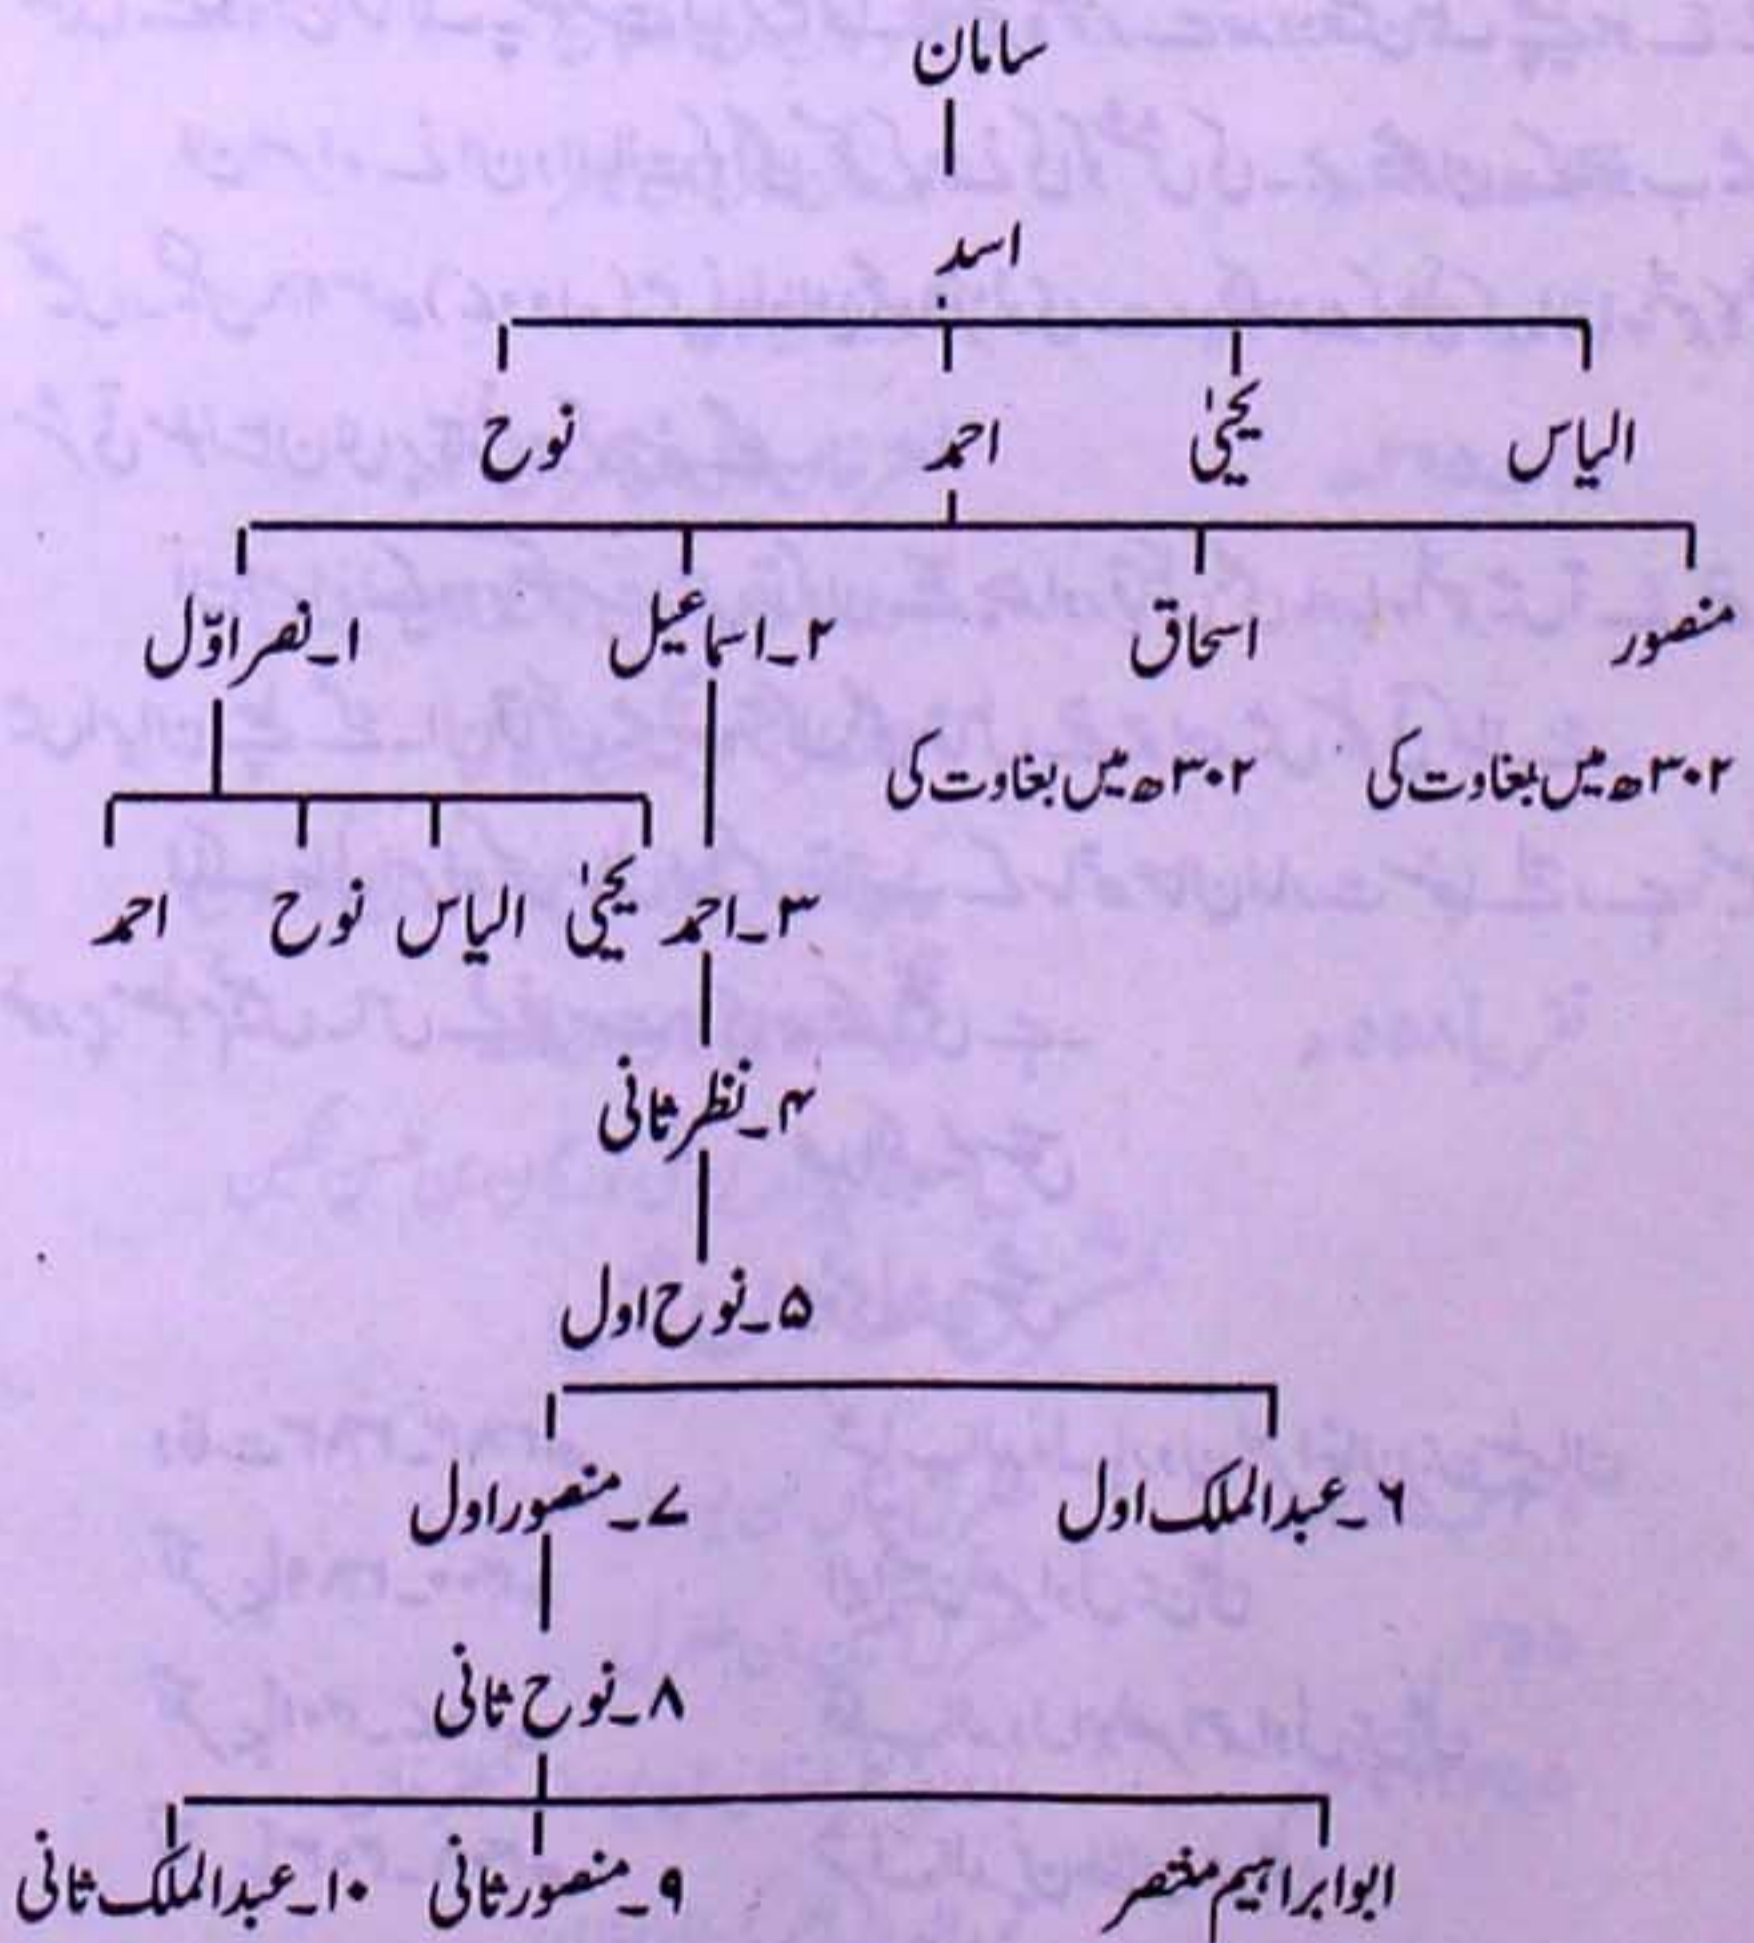 سامان
اسد
الیاس یحییٰ احمد نوح
منصور اسحاق ۲۔اسماعیل ۱۔نصر اوّل
۳۰۲ھ میں بغاوت کی ۳۰۲ھ میں بغاوت کی
۳۔احمد یحییٰ الیاس نوح احمد
۴۔نظر ثانی
۵۔نوح اول
۶۔عبدالملک اول ۷۔منصور اول
۸۔نوح ثانی
ابوابراہیم منتصر ۹۔منصور ثانی ۱۰۔عبدالملک ثانی